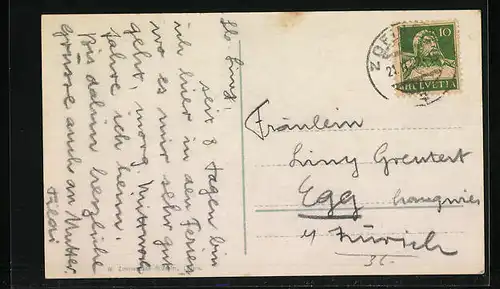 Lb. Liny!
seit 8 Tagen bin
ich hier in den Ferien
wo es mir sehr gut
geht, morg. Mittwoch
fahre ich heim.
Bis dahin herzliche
Grüsse auch an Mutter.
ZOFI
21.
10
HELVETIA
Fräulein
Liny Greutert
Egg
Zürich